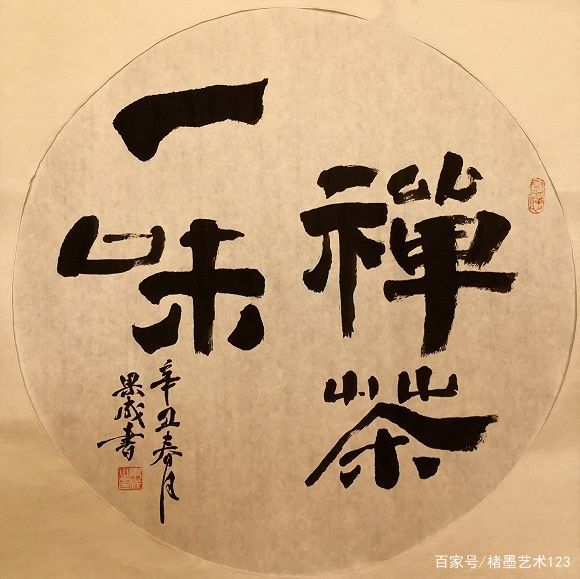 禪茶
一味
辛丑春月
果成書
百家号/楮墨艺术123